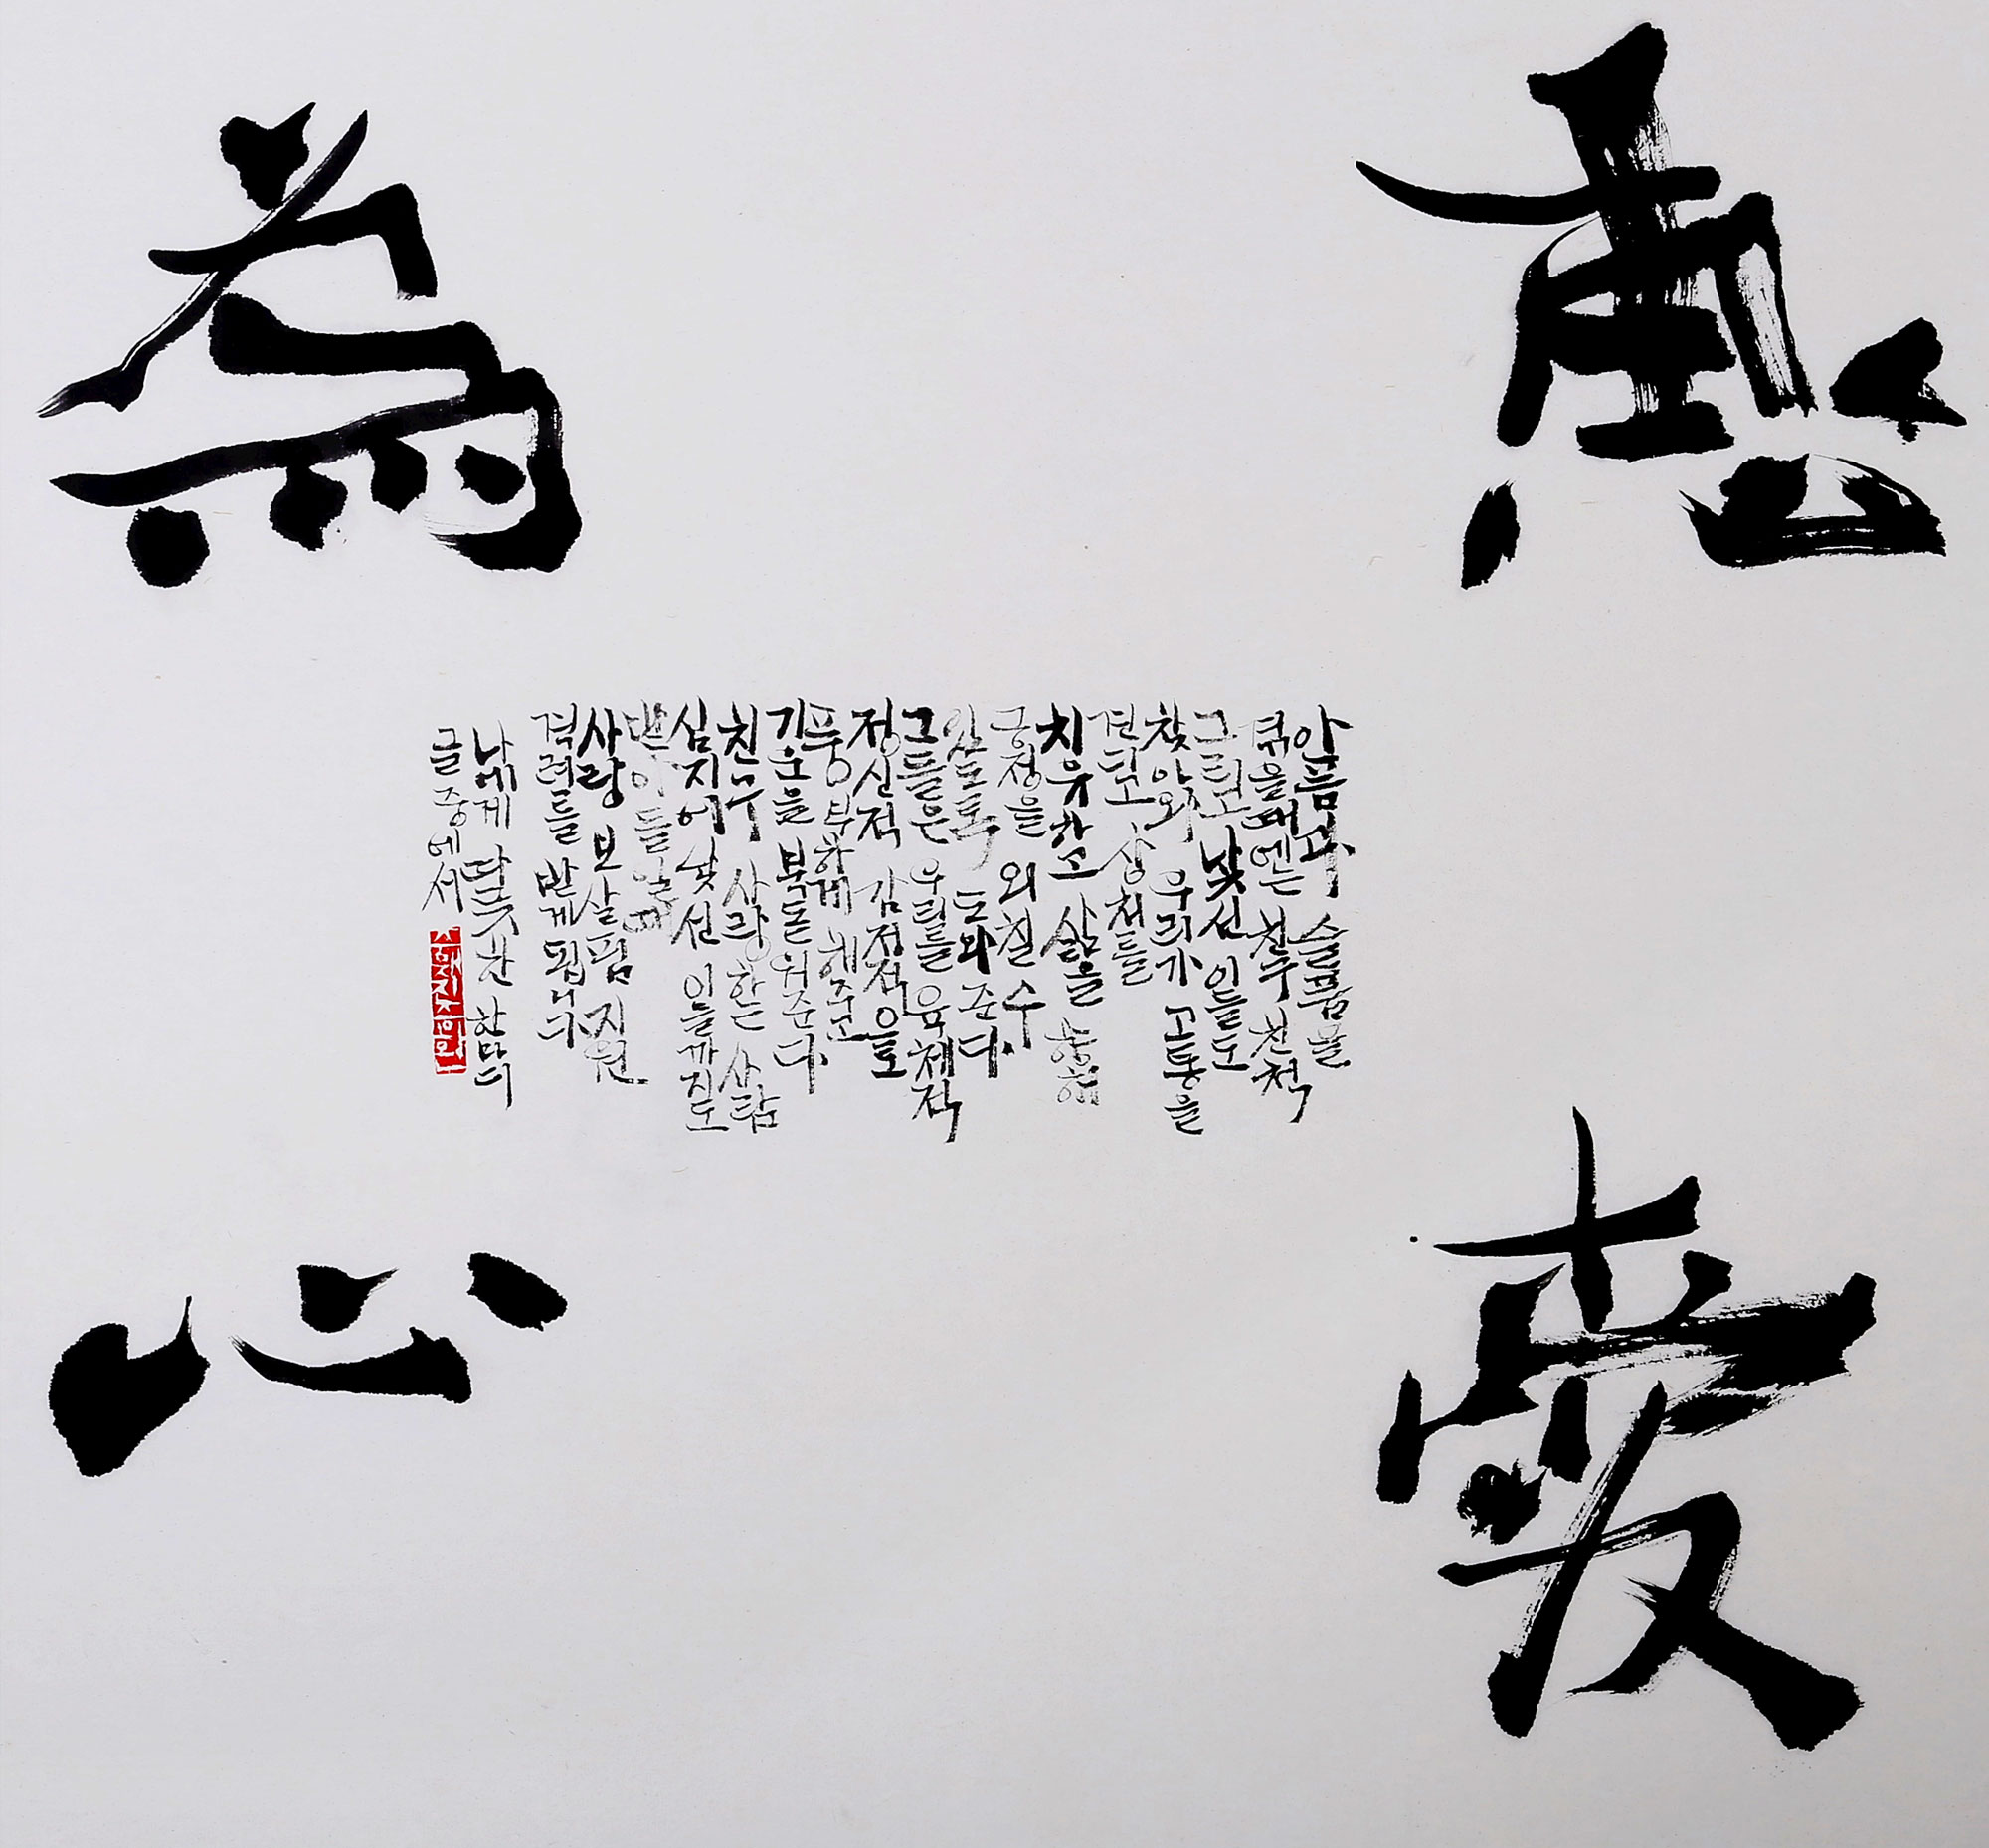 惠愛
為心
아픔과 슬픔을
겪을때에는 친구 친척
그리고 낯선 이들도
찾아와 우리가 고통을
견디고 상처를
치유하고 삶을 향해
긍정을 외칠 수
있도록 도와준다
그들은 우리를 육체적
정신적 감정적으로
풍부하게 해주고
기운을 북돋워준다
친구 사랑하는 사람
심지어 낯선 이들까지도
받아들일때
사랑 보살핌 지원
격려를 받게됩니다
나에게 따뜻한 한마디
글중에서